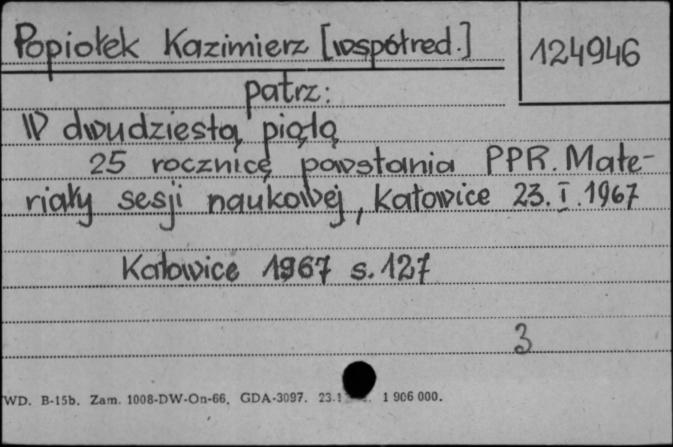 Popiołek Kazimierz [współred.]
124946
patrz:
W dwudziestą piątą
25 rocznicę powstania PPR. Mate-
riały sesji naukowej, Katowice 23.I.1967
Katowice 1967 s.127
3
WD. B-15b. Zam. 1008-DW-On-66. GDA-3097. 23.1 1 906 000.